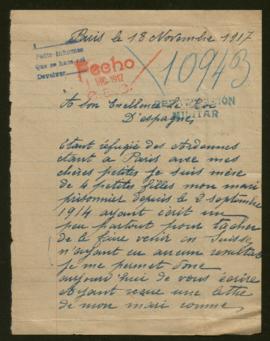 Paris le 18 Novembre 1917
Pedir Informes
que se han de
Devolver
Fecho
1917
10943
A son Excellence le Roi
D'espagne,
MILITAR
étant réfugié des Ardennes
étant à Paris avec mes
chères petites je suis mère
de 4 petites filles mon mari
prisonnier depuis le 2 septembre
1914 ayant écrit un
peu partout pour tacher
de le faire venir en Suisse
n'ayant eu aucun resultat
je me permet donc
aujourd'hui de vous écrire
ayant reçue une lettre
de mon mari comme